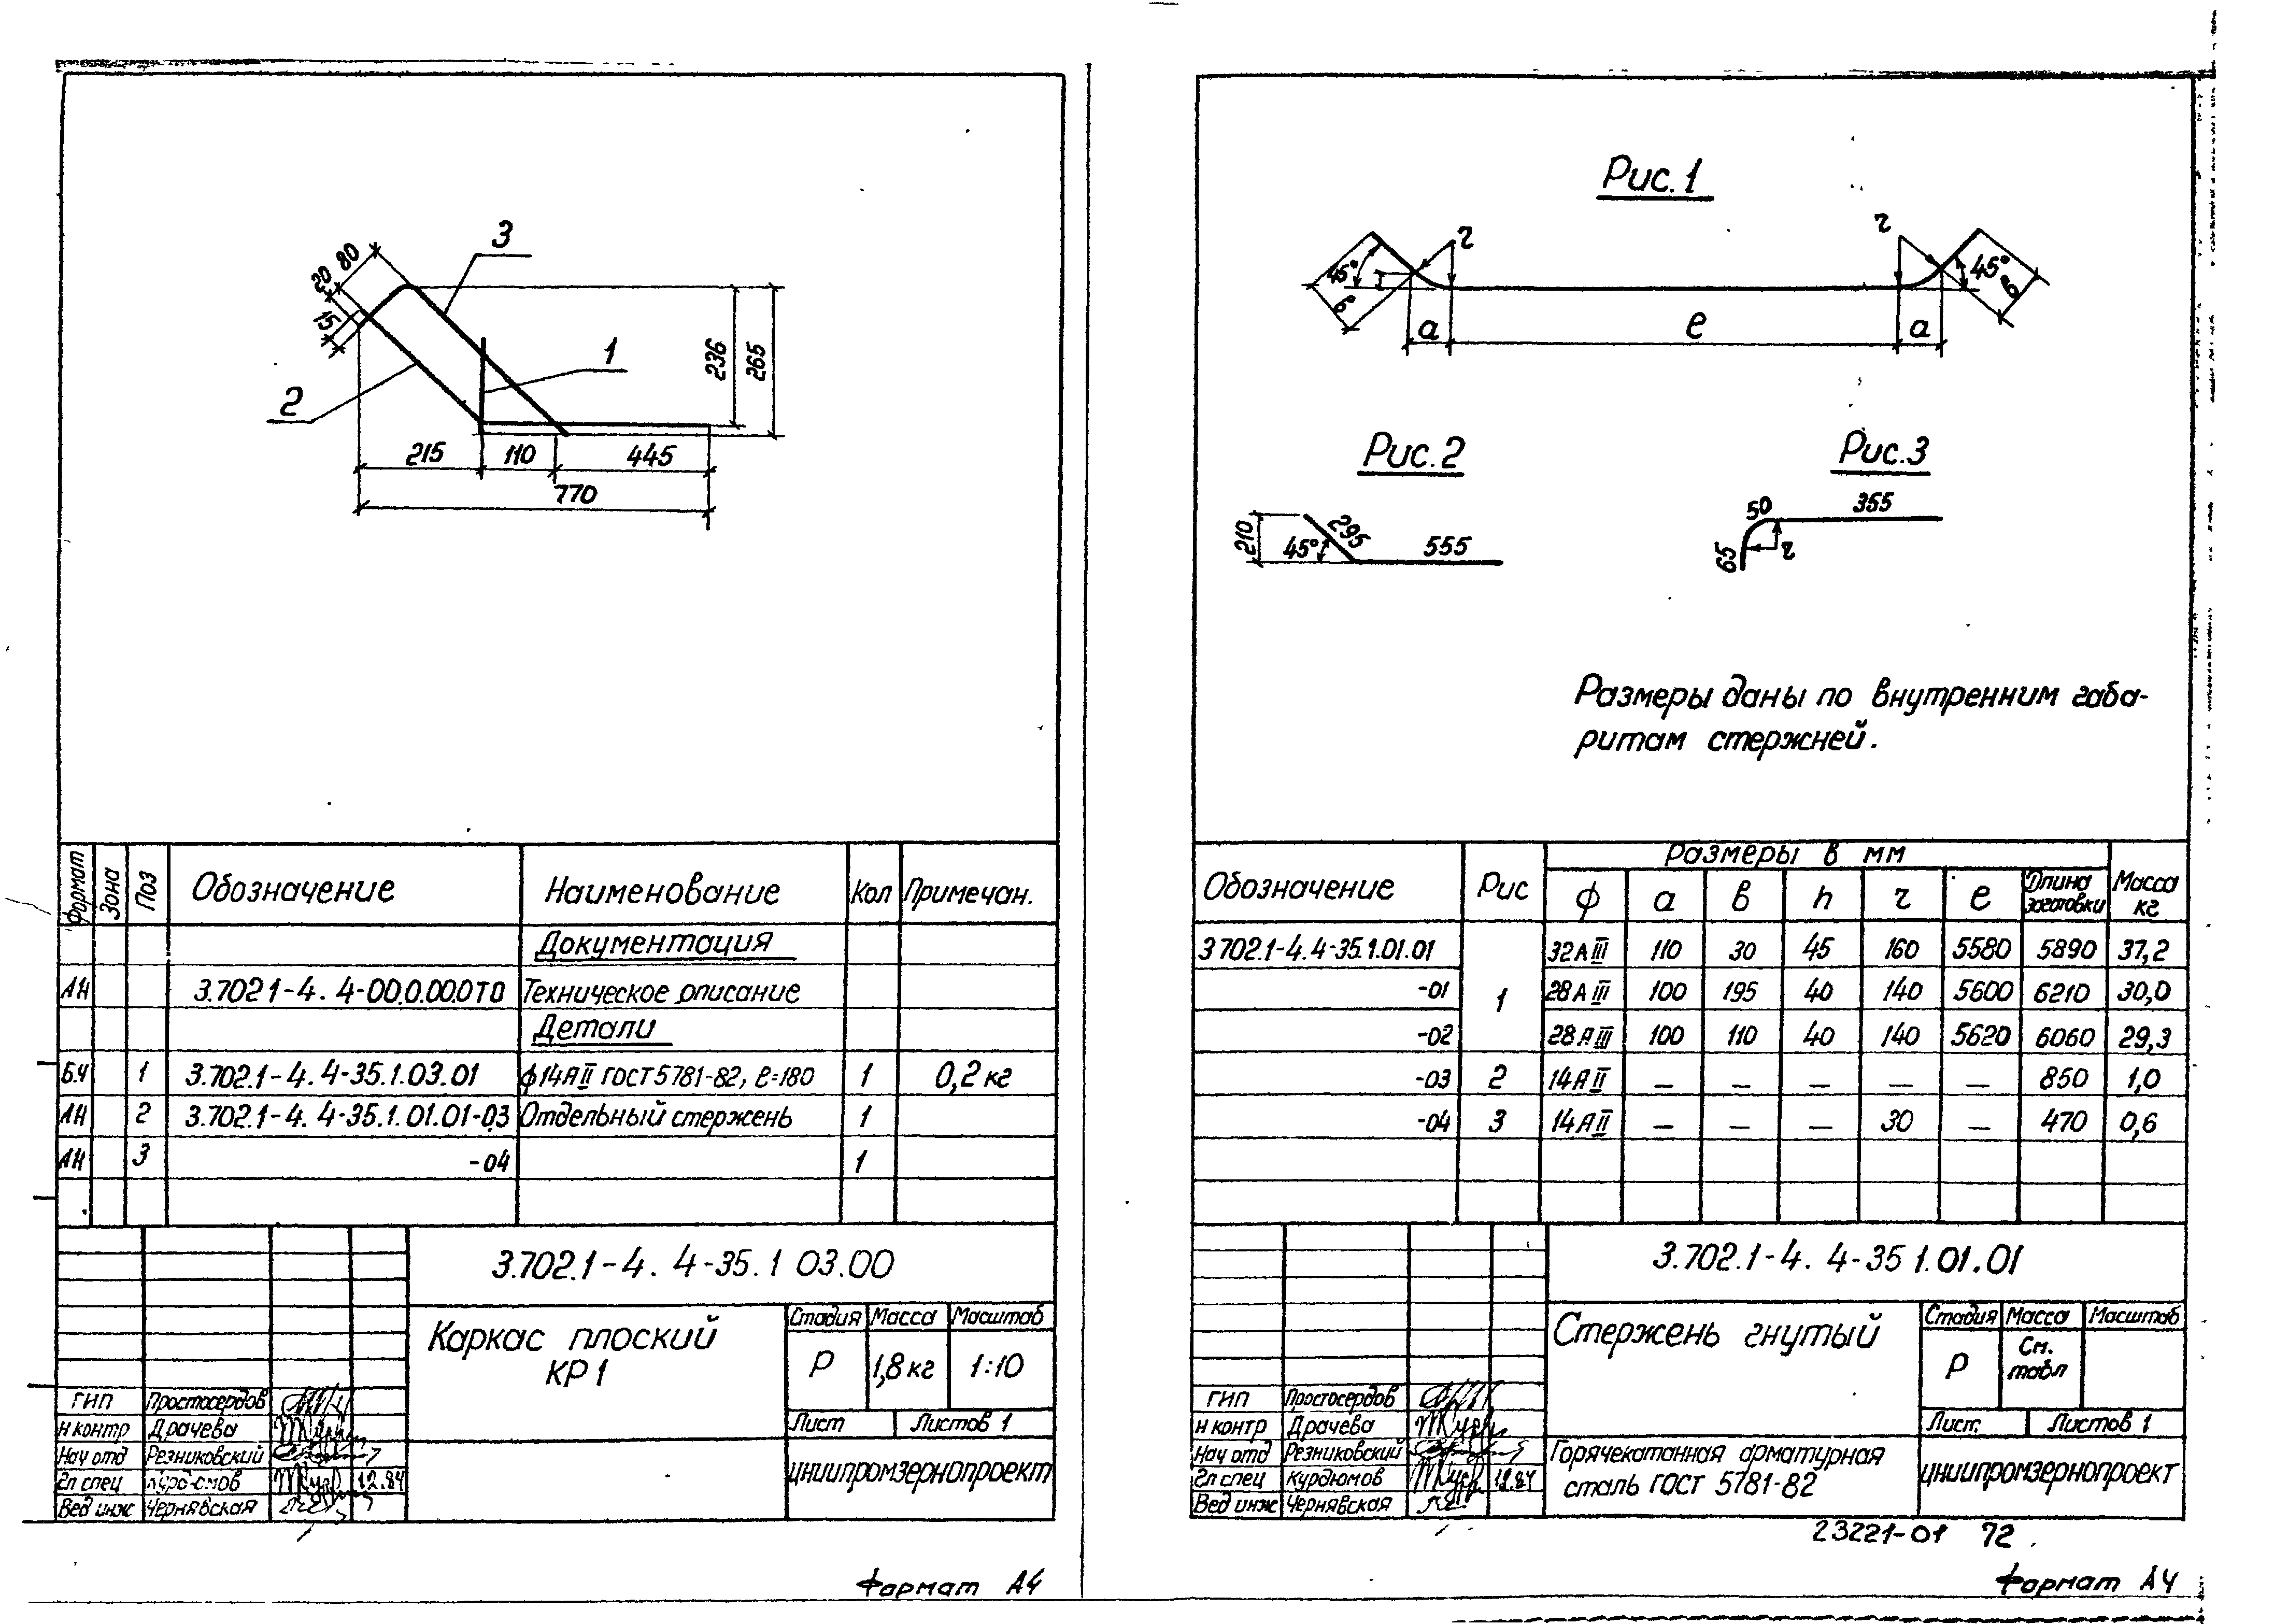 3
80
20
15
1
2
236
265
215 110 445
770
Формат Зона Поз Обозначение Наименование Кол Примечан.
Документация
А4 3.702 1-4. 4-00.0.00.0ТО Техническое описание
Детали
Б.Ч 1 3.702.1-4. 4-35.1.03.01 ф14АII ГОСТ 5781-82, ℓ=180 1 0,2 кг
А4 2 3.702.1-4. 4-35.1.01.01-03 Отдельный стержень 1
А4 3 -04 1
3.702.1-4. 4-35.1 03.00
Каркас плоский
КР1
Стадия Масса Масштаб
Р 1,8 кг 1:10
Лист Листов 1
ГИП Простосердов
Н контр Драчева
Нач отд Резниковский
Гл спец 12.84
Вед инж Чернявская
ЦНИИПРОМЗЕРНОПРОЕКТ
Формат А4
Рис. 1
r
r
45°
в
45°
в
а ℓ а
Рис. 2
210
295
45°
555
Рис. 3
50
355
65
r
Размеры даны по внутренним габа-
ритам стержней.
Обозначение Рис Размеры в мм Масса кг
ф а в h r ℓ Длина заготовки
3 702.1-4. 4-35.1.01.01 1 32АIII 110 30 45 160 5580 5890 37,2
-01 28АIII 100 195 40 140 5600 6210 30,0
-02 28АIII 100 110 40 140 5620 6060 29,3
-03 2 14АII — — — — — 850 1,0
-04 3 14АII — — — 30 — 470 0,6
3.702.1-4. 4-35 1.01.01
Стержень гнутый
Стадия Масса Масштаб
Р См. табл
Лист. Листов 1
ГИП Простосердов
Н контр Драчева
Нач отд Резниковский
Гл спец Курдюмов 12.84
Вед инж Чернявская
Горячекатанная арматурная
сталь ГОСТ 5781-82
ЦНИИПРОМЗЕРНОПРОЕКТ
23221-01 72
Формат А4